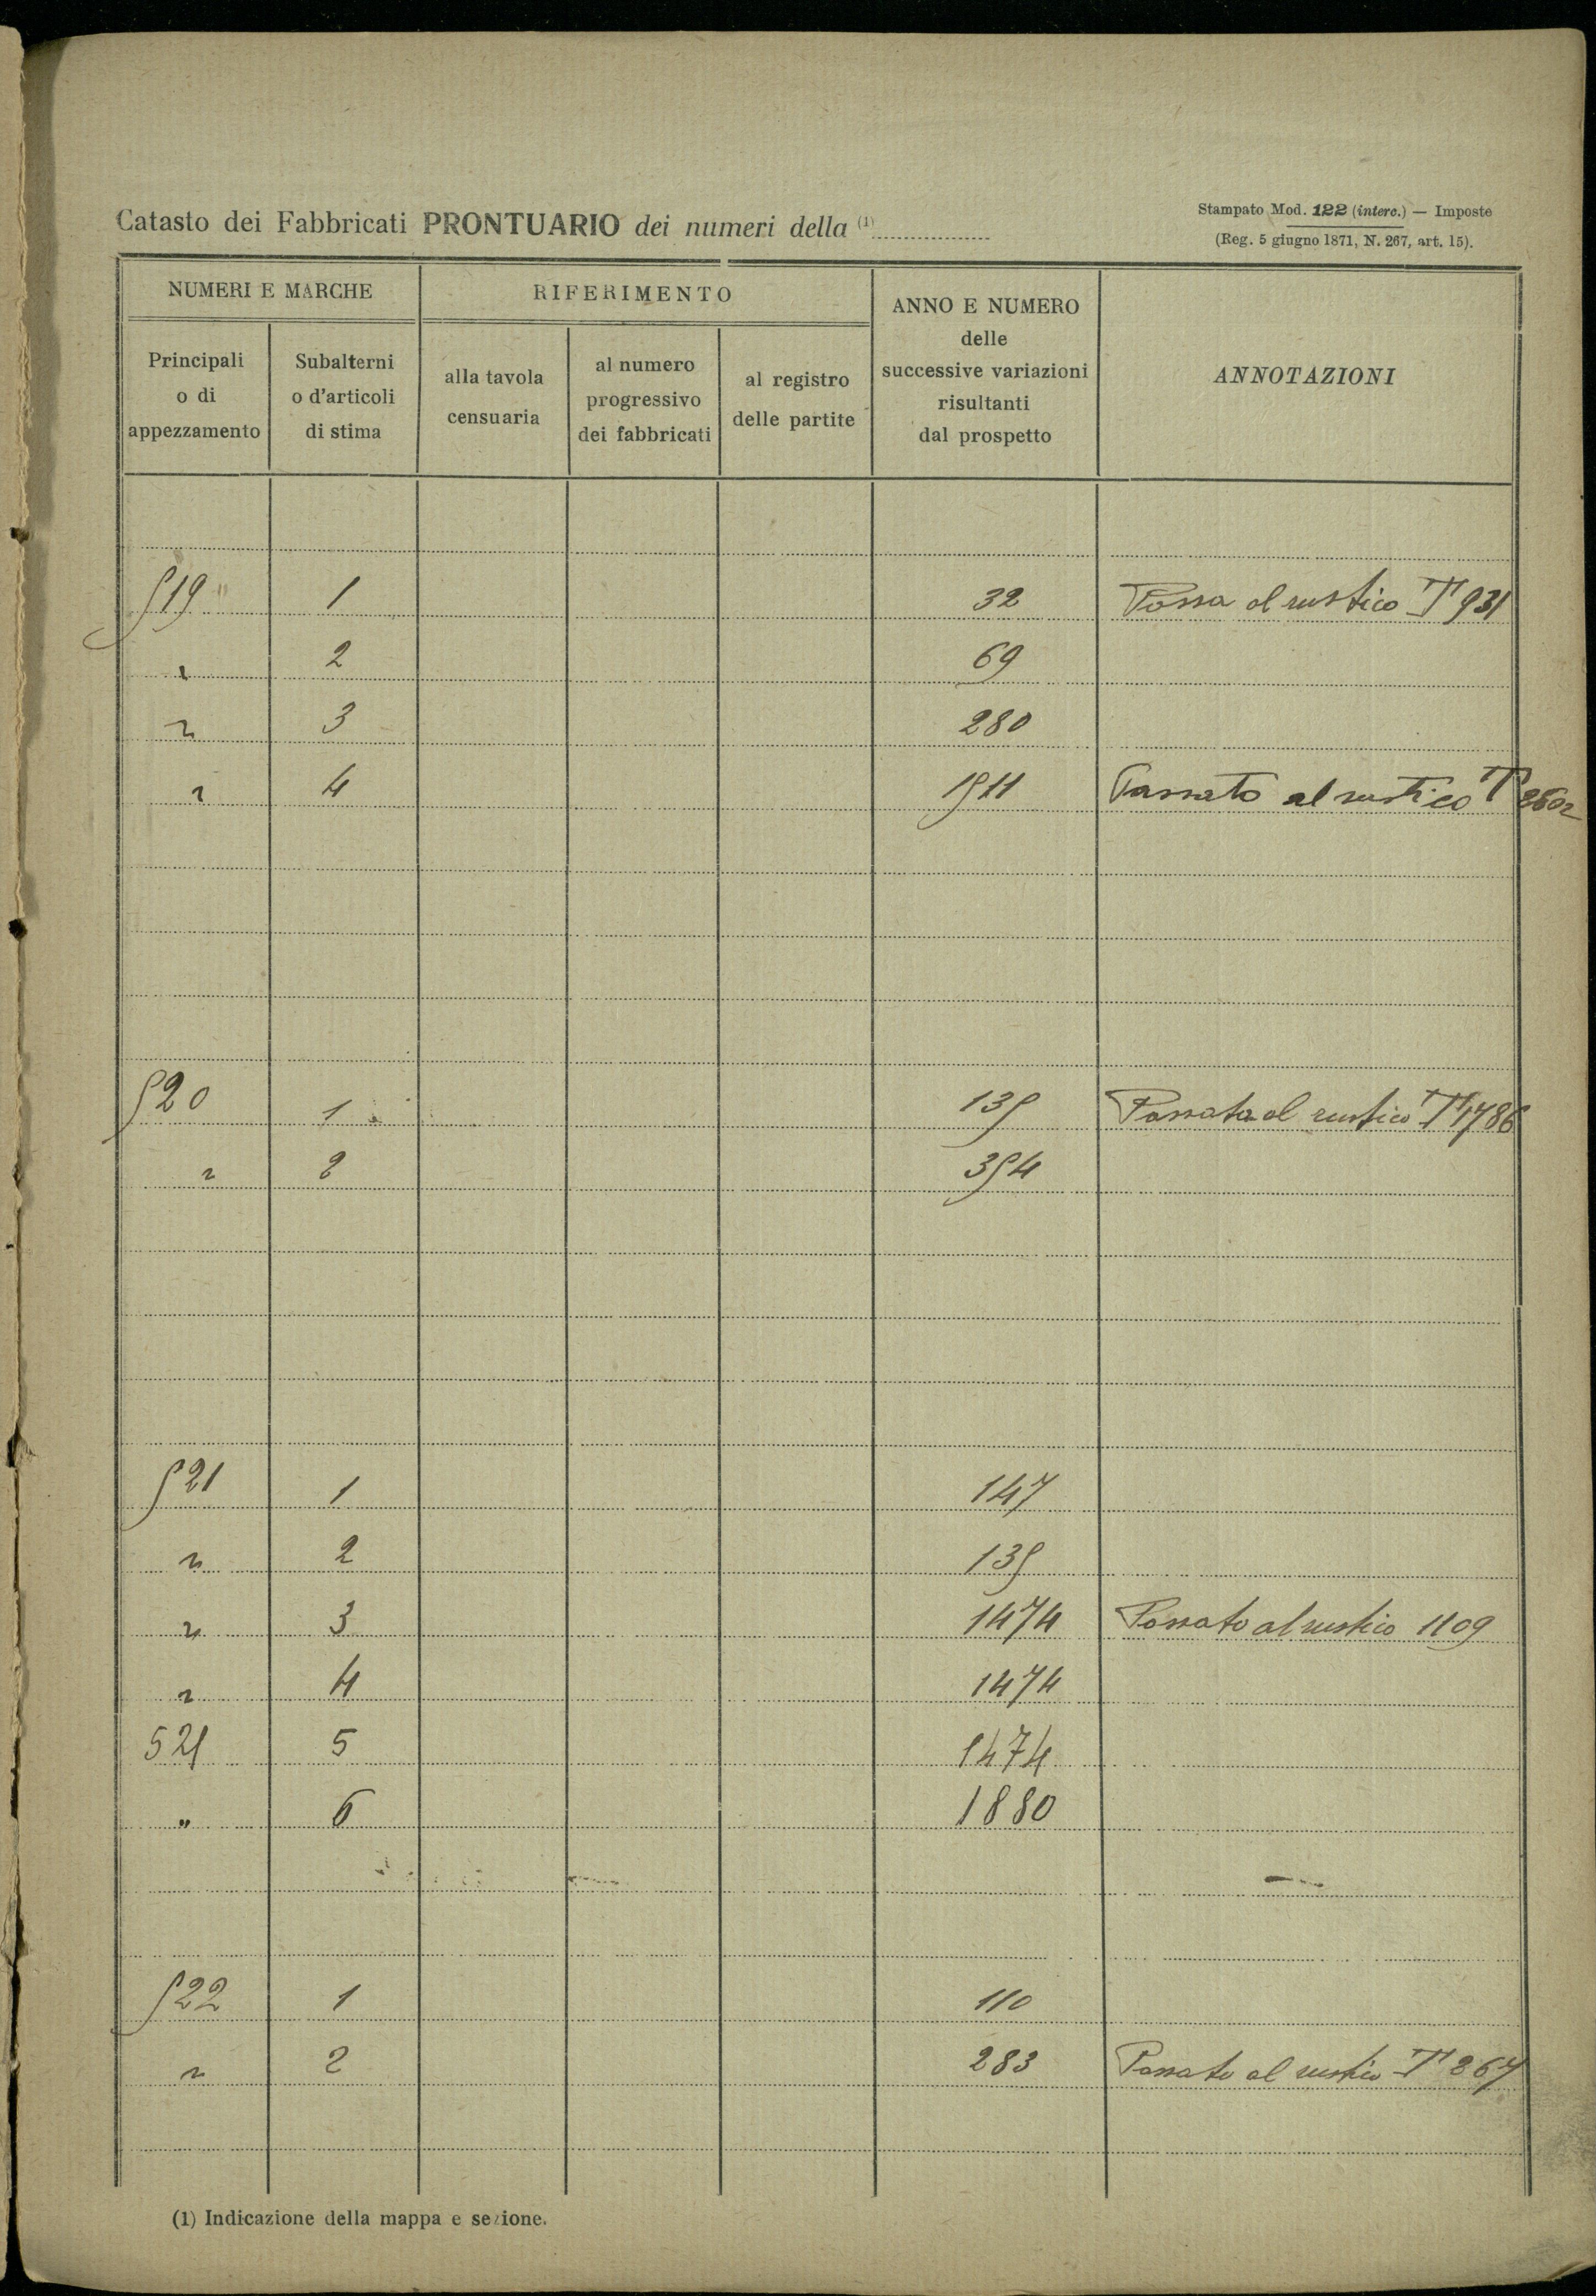 Catasto dei Fabbricati PRONTUARIO dei numeri della (1)
Stampato Mod. 122 (interc.) — Imposte
(Reg. 5 giugno 1871, N. 267, art. 15).
NUMERI E MARCHE
RIFERIMENTO
ANNO E NUMERO
delle
successive variazioni
risultanti
dal prospetto
ANNOTAZIONI
Principali
o di
appezzamento
Subalterni
o d'articoli
di stima
alla tavola
censuaria
al numero
progressivo
dei fabbricati
al registro
delle partite
519 " 1 32 Passa al rustico T 931
" 2 69
" 3 280
" 4 1511 Passato al rustico T 2602
520 1 135 Passata al rustico T 1786
" 2 354
521 1 147
" 2 135
" 3 1474 Passato al rustico 1109
" 4 1474
521 5 1474
" 6 1880
522 1 110
" 2 283 Passato al rustico T 267
(1) Indicazione della mappa e sezione.